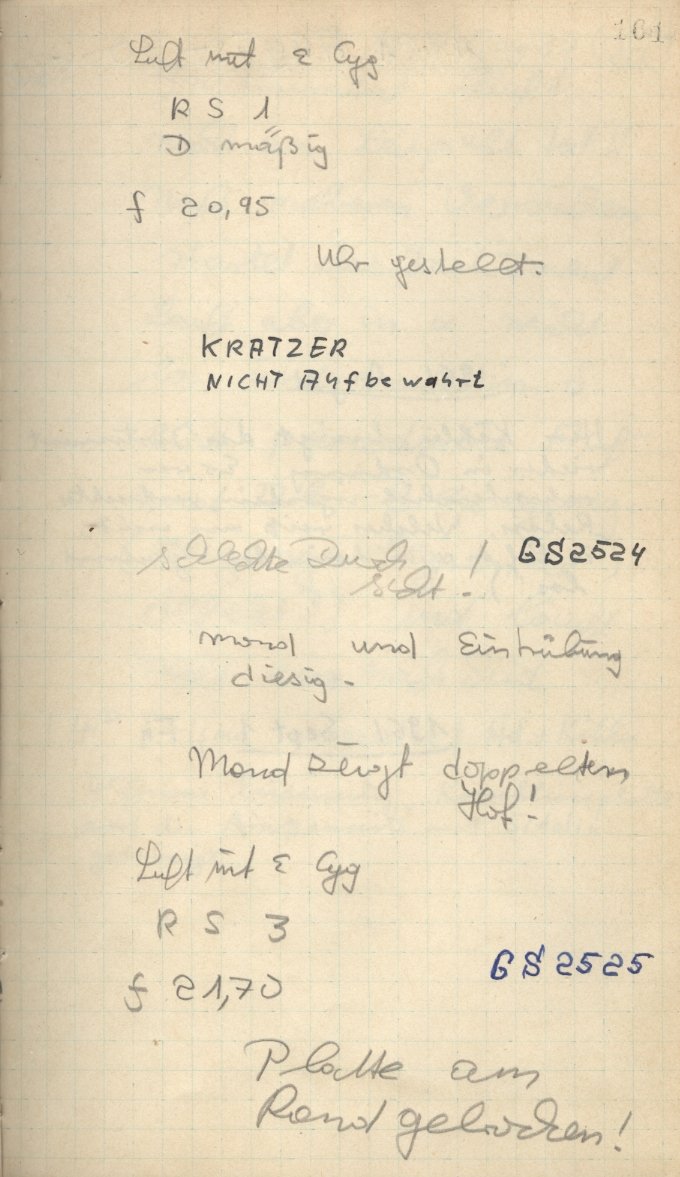 161
Luft mit ε Cyg
R S 1
D mäßig
f 20,95
Uhr gestellt.
KRATZER
NICHT Aufbewahrt
schlechte Durch
sicht! GS2524
Mond und Eintrübung
diesig -
Mond zeigt doppelten
Hof!
Luft mit ε Cyg
R S 3
GS2525
f 21,70
Platte am
Rand gebrochen!